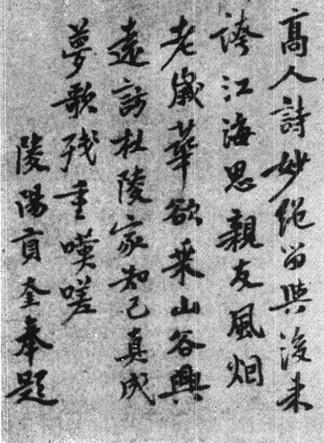 高人詩妙絕留與後来
誇江海思親友風烟
老歲華欲乘山谷興
遠訪杜陵家知己真成
夢歌殘重嘆嗟
陵陽貢奎奉題